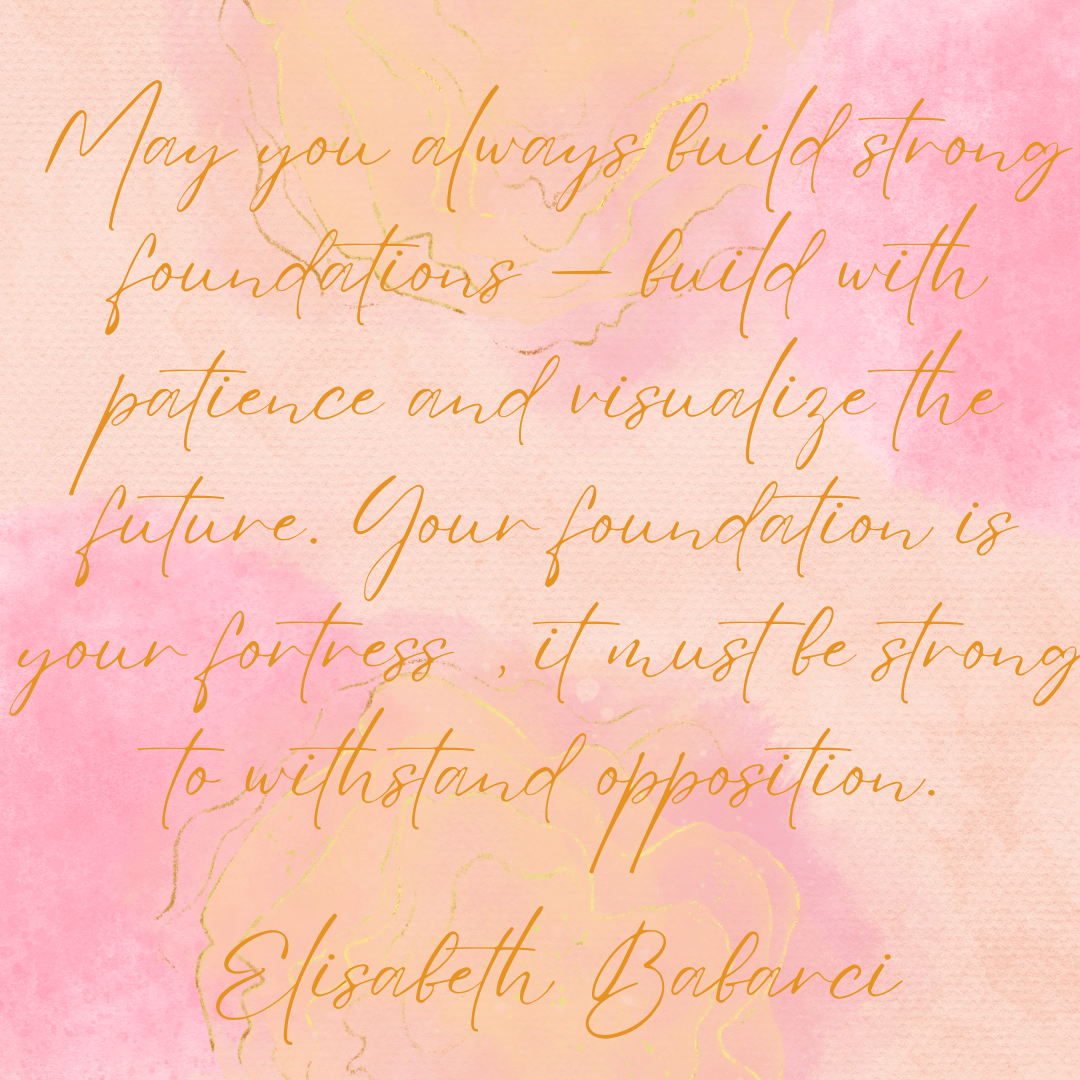 May you always build strong
foundations – build with
patience and visualize the
future. Your foundation is
your fortress , it must be strong
to withstand opposition.
Elisabeth Babarci